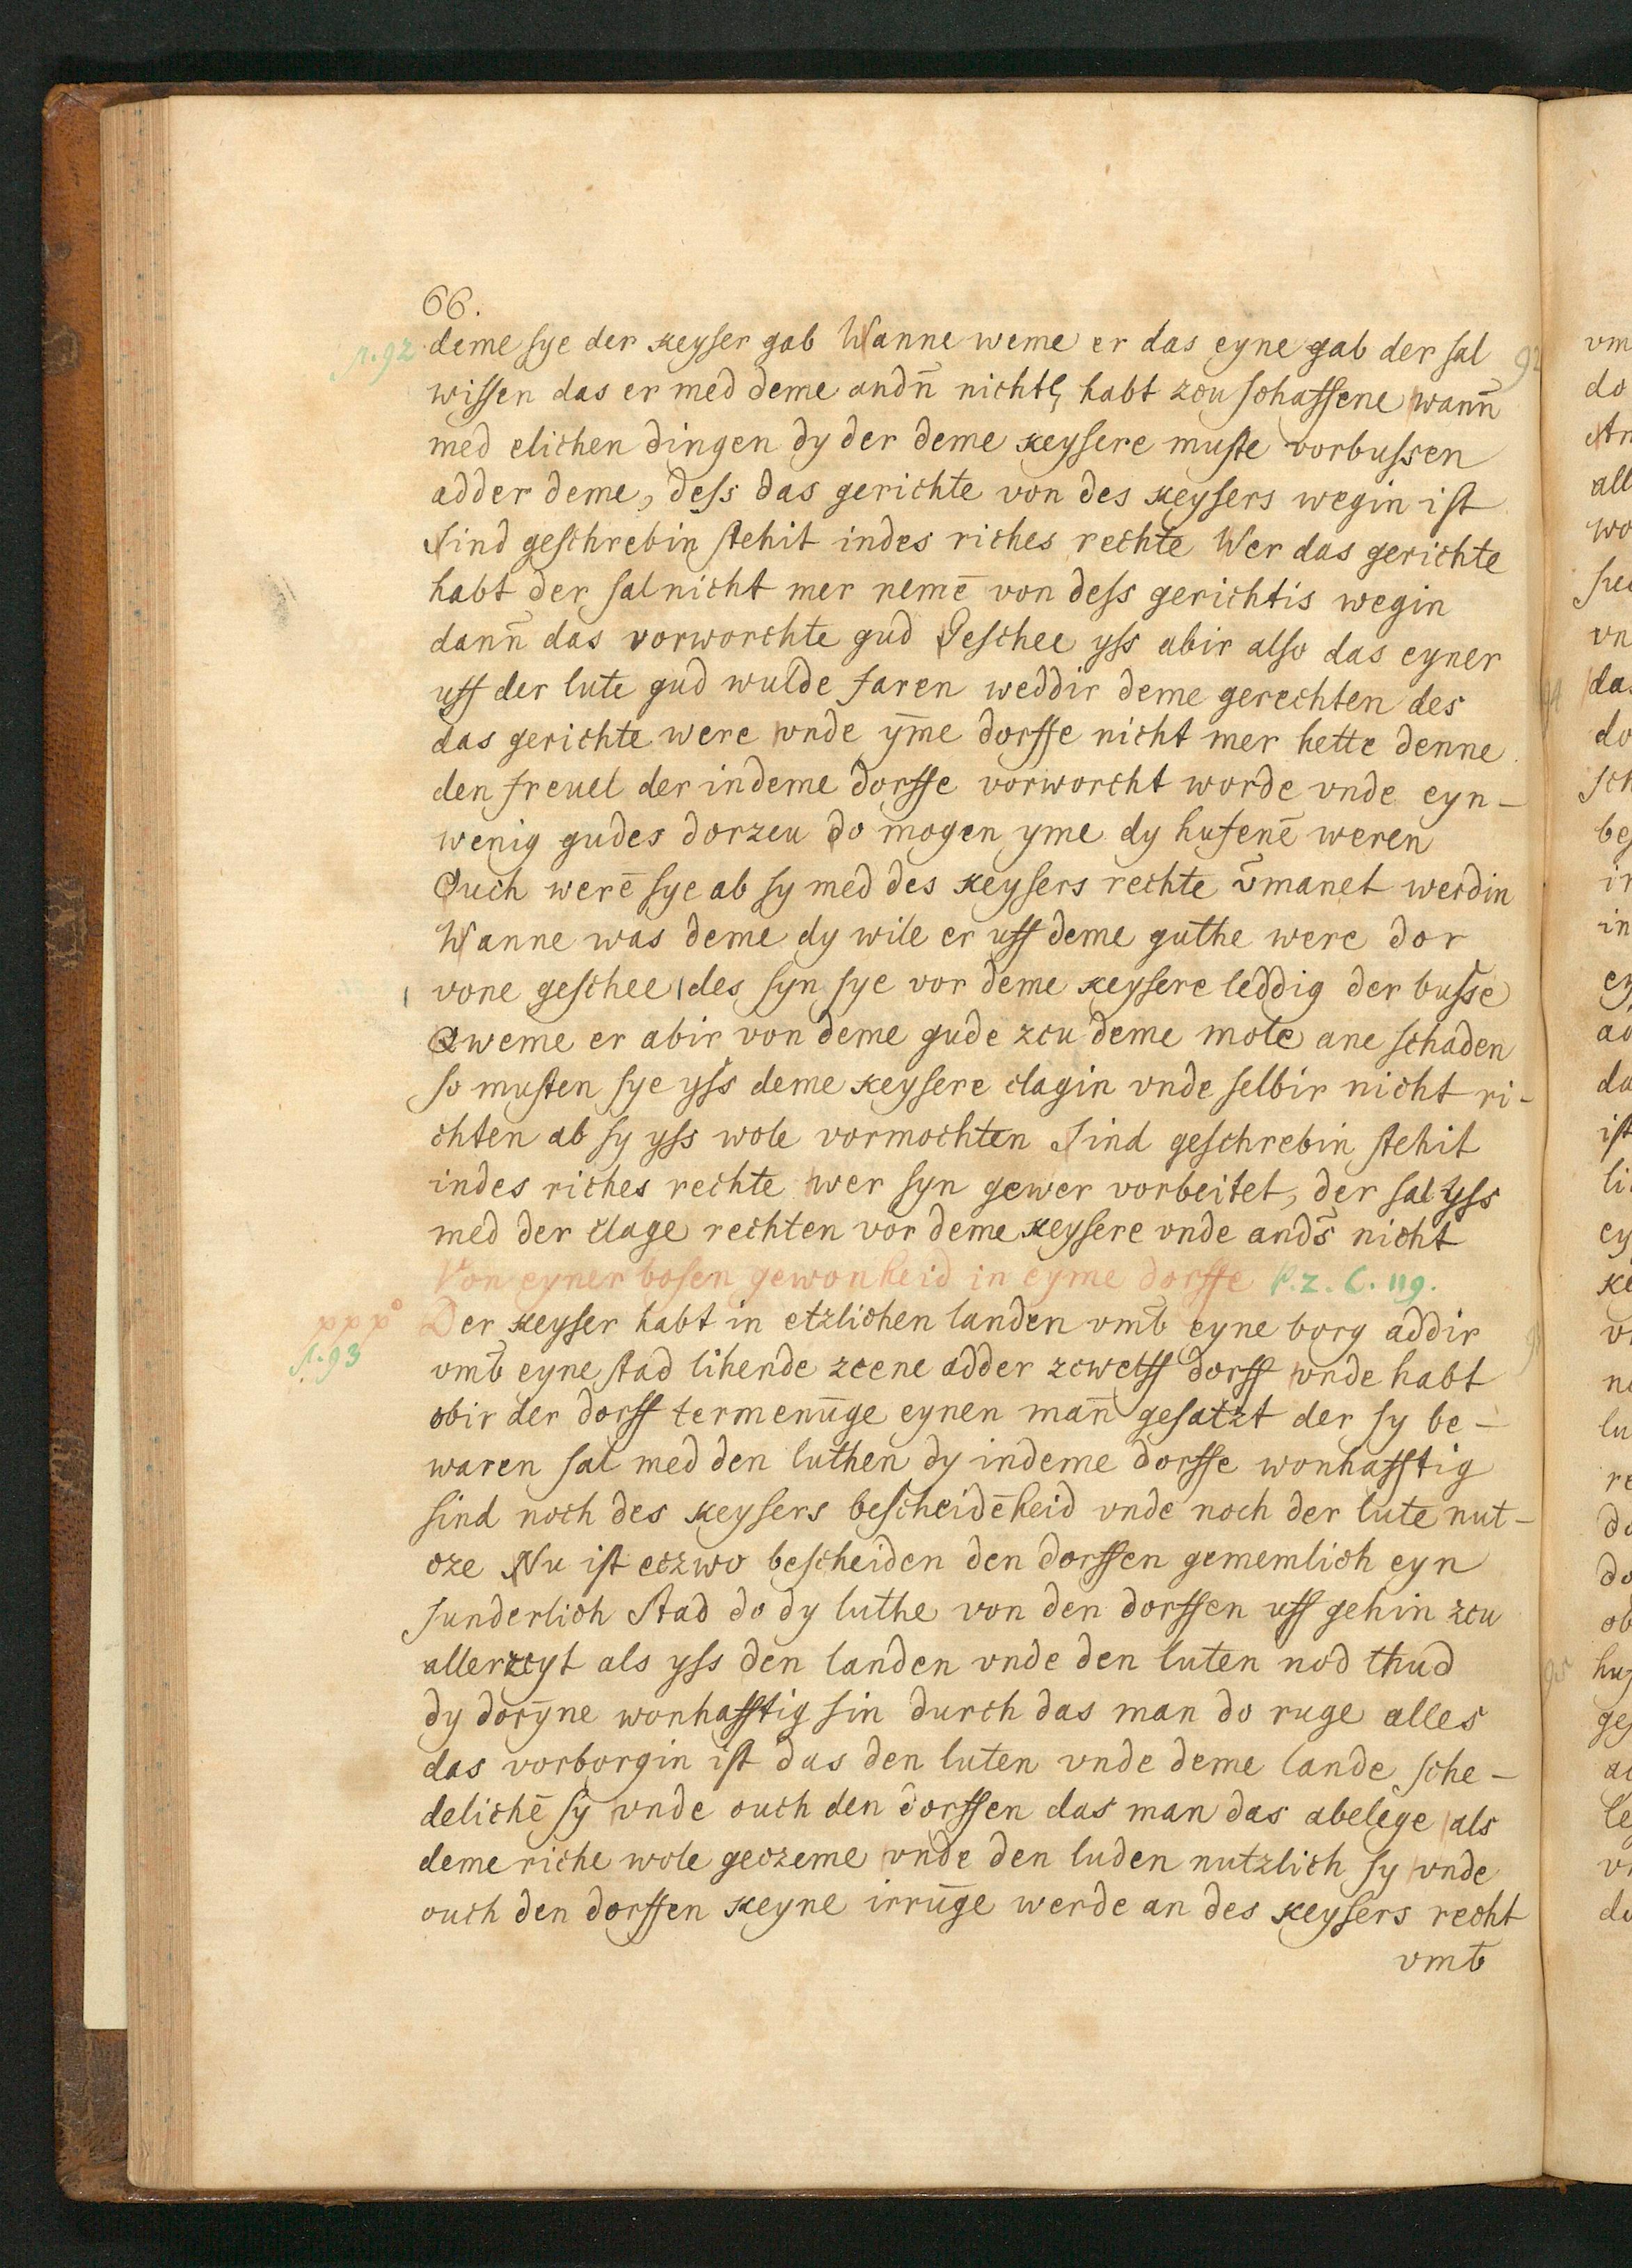 66.
p. 92 deme sye der keyser gab Wanne weme er das eyne gab der sal
wissen das er med deme andn̄ nichtꝭ habt zcu schaffene wann̄
med elichen dingen dy der deme keysere muste vorbussen
adder deme, dess das gerichte von des keysers wegin ist
Sind geschrebin stehit indes riches rechte Wer das gerichte
habt der sal nicht mer nemē von dess gerichtis wegin
dann̄ das vorworchte gud Geschee yss abir also das eyner
uff der lute gud wulde faren weddir deme gerechten des
das gerichte were vnde ym̄e dorffe nicht mer hette denne
den freuel der indeme dorffe vorworcht worde vnde eyn-
wenig gudes dorzcu do mogen yme dy hufenē weren
Ouch werē sye ab sy med des keysers rechte v̄manet werdin
Wanne was deme dy wile er uff deme guthe were dor
vone geschee des syn sye vor deme keysere leddig der busse
Qweme er abir von deme gude zcu deme mole ane schaden
so musten sye yss deme keysere clagin vnde selbir nicht ri-
chten ab sy yss wole vormochten Sind geschrebin stehit
indes riches rechte wer syn gewer vorbeitet, der sal yss
med der clage rechten vor deme keysere vnde ands̄ nicht
Von eyner bosen gewonheid in eyme dorffe P. 2. C. 119.
p p p°
p. 93
Der keyser habt in etzlichen landen vmb̄ eyne borg addir
vmb̄ eyne stad lihende zcene adder zcwelff dorff vnde habt
obir der dorff termenūge eynen man̄ gesatzt der sy be-
waren sal med den luthen dy indeme dorffe wonhafftig
sind noch des keysers bescheidēheid vnde noch der lute nut-
cze Nu ist eczwo bescheiden den dorffen gememlich eyn
sunderlich Stad do dy luthe von den dorffen uff gehin zcu
allerzcyt als yss den landen vnde den luten nod thud
dy dorȳne wonhafftig sin durch das man do ruge alles
das vorborgin ist das den luten vnde deme lande sche-
delichē sy vnde ouch den dorffen das man das abelege als
deme riche wole geczeme vnde den luden nutzlich sy vnde
ouch den dorffen keyne irrūge werde an des keysers recht
vmb